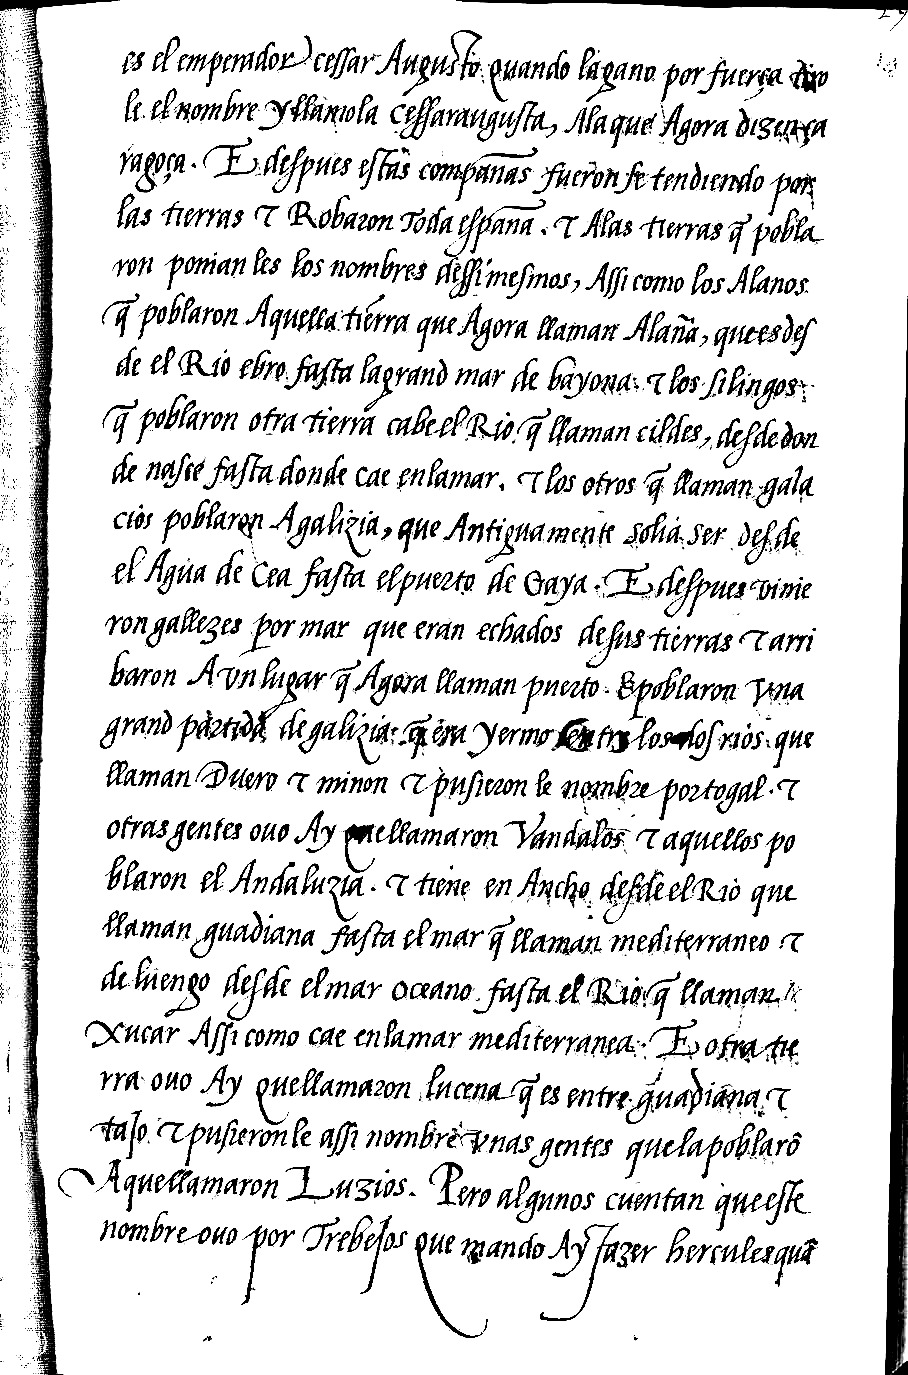 es el emperador cessar Augusto quando la gano por fuerça tiro
le el nombre y llamola cessaraugusta, Ala que Agora dizen ça
ragoça. E despues estās compan̄as fueron se tendiendo por
las tierras τ Robaron toda espan̄a. τ Alas tierras q̄ pobla
ron ponian les los nombres dessimesmos, Assi como los Alanos
q̄ poblaron Aquella tierra que Agora llaman Alan̄a, que es des
de el Rio ebro fasta la grand mar de bayona. τ los silingos
q̄ poblaron otra tierra cabe el Rio q̄ llaman cildes, desde don
de nasce fasta donde cae en la mar. τ los otros q̄ llaman gala
cios poblaron Agalizia, que Antiguamente solia ser desde
el Agua de Cea fasta el puerto de Gaya. E despues vinie
ron gallezes por mar que eran echados de sus tierras τ arri
baron A vn lugar q̄ Agora llaman puerto. & poblaron vna
grand partida de galizia q̄ era yermo entre los dos rios que
llaman Duero τ minon τ pusieron le nombre portogal. τ
otras gentes ouo Ay que llamaron Vandalos τ aquellos po
blaron el Andaluzia. τ tiene en Ancho desde el Rio que
llaman guadiana fasta el mar q̄ llaman mediterraneo τ
de luengo desde el mar oceano fasta el Rio q̄ llaman
Xucar Assi como cae en la mar mediterranea. E otra tie
rra ouo Ay que llamaron lucena q̄ es entre guadiana τ
tajo τ pusieron le assi nombre vnas gentes que la poblarō
Aque llamaron Luzios. Pero algunos cuentan que este
nombre ouo por Trebejos que mando Ay fazer hercules quā